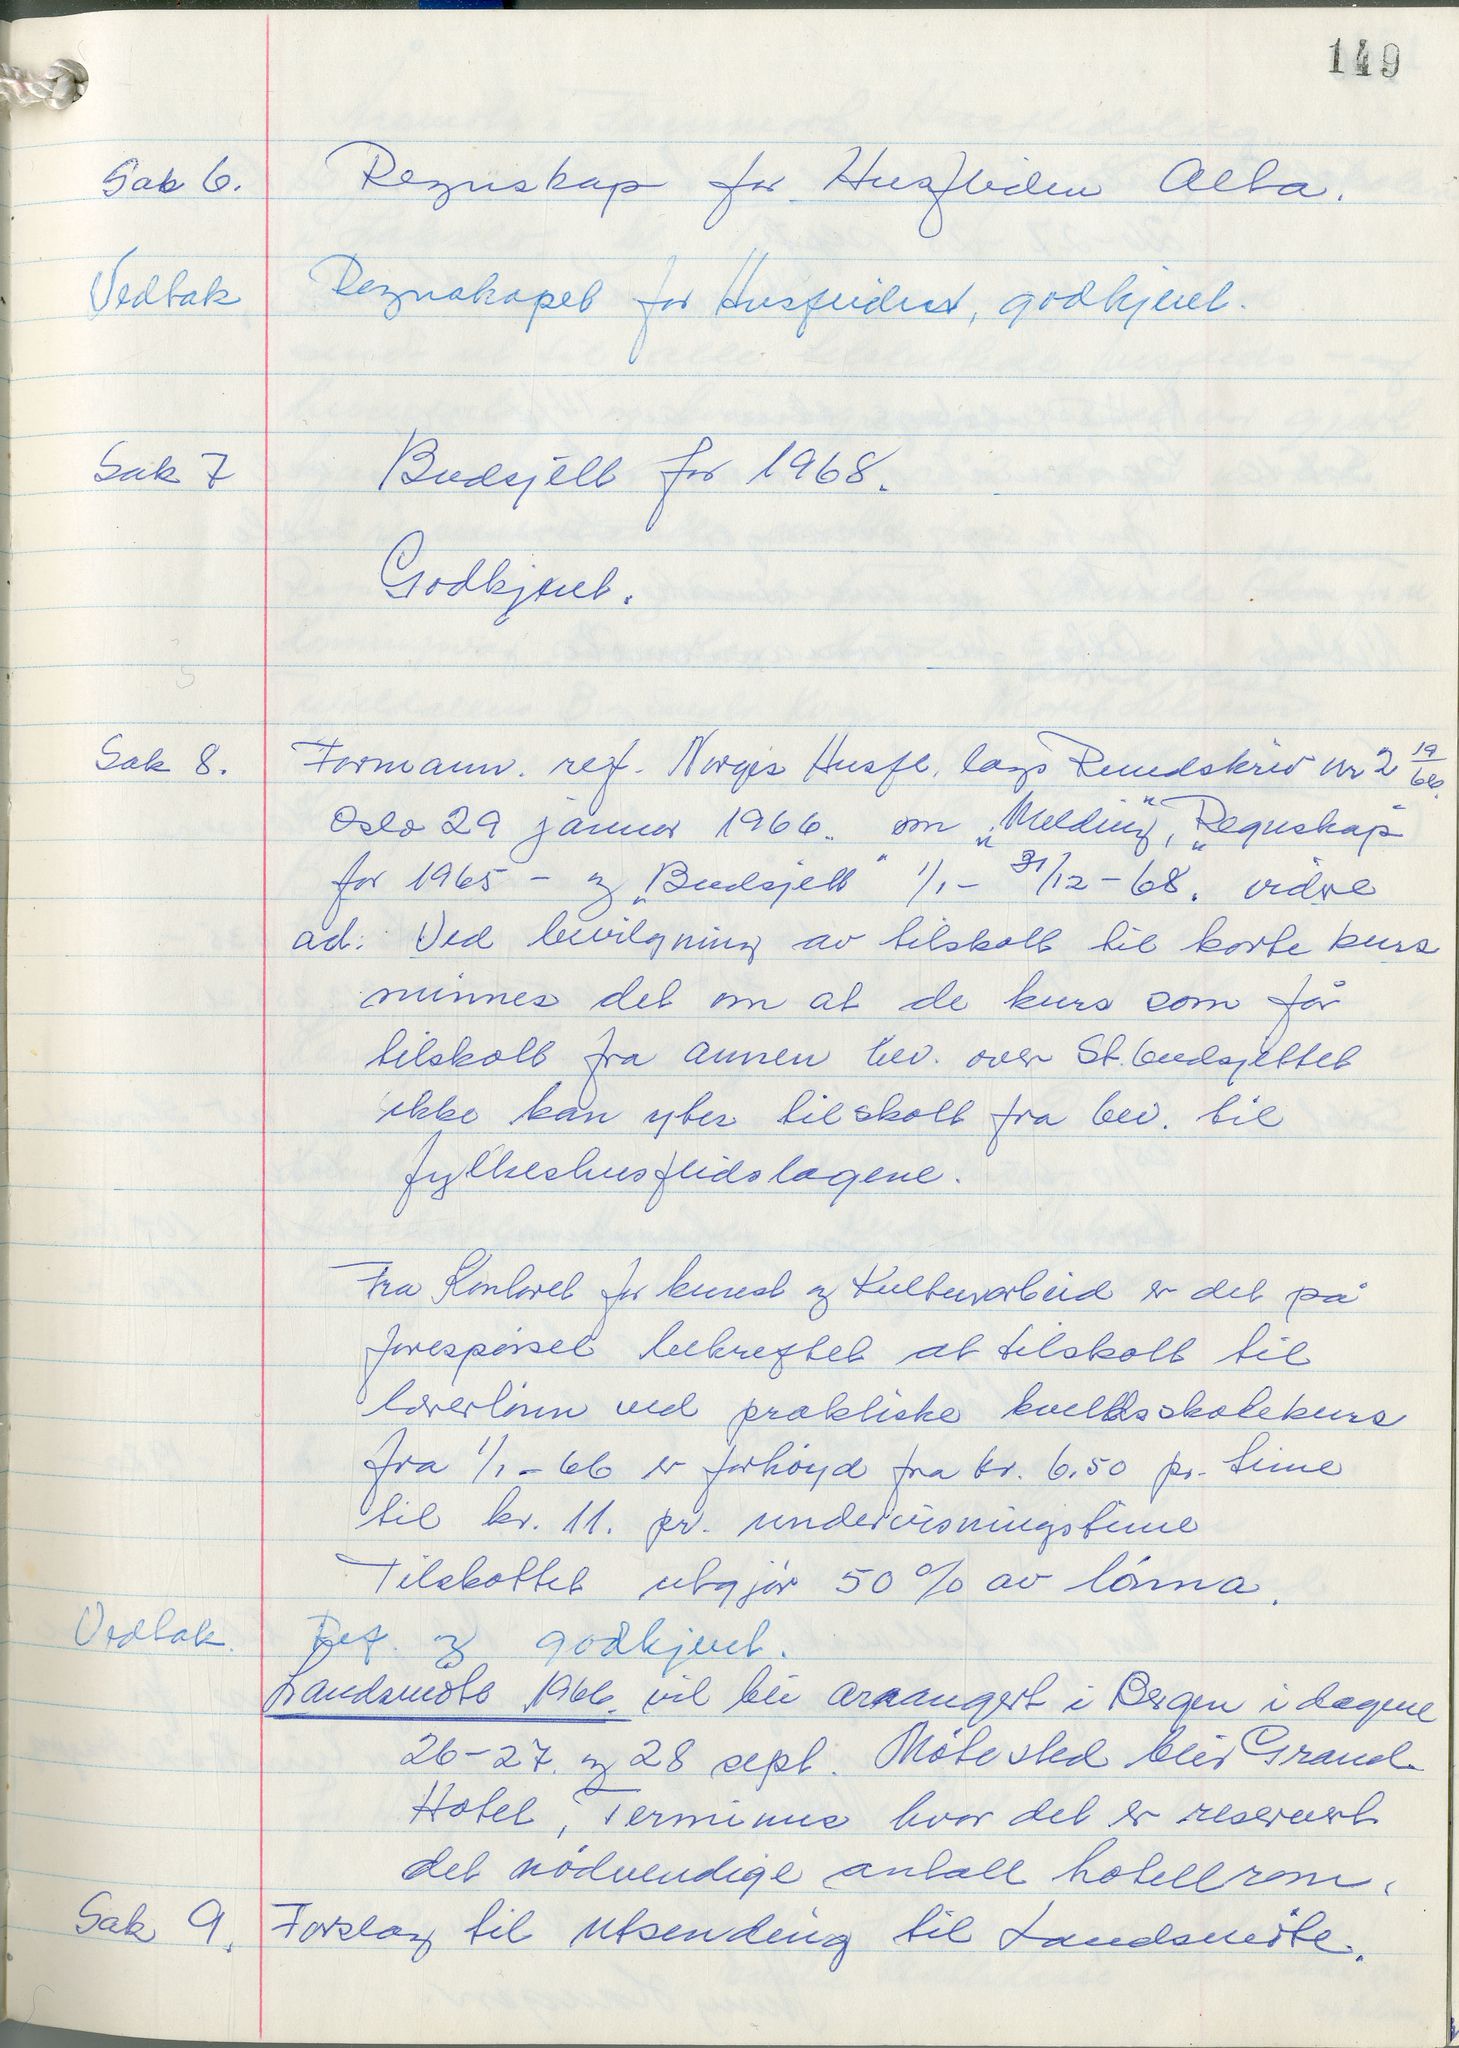 149
Sak 6. Regnskap for Husfliden Alta.
Vedtak Regnskapet for Husfliden, godkjent.
Sak 7 Budsjett for 1968.
Godkjent.
Sak 8. Formann. ref. Norges Husfl. lags Rundskriv nr 2 19/66.
Oslo 29 januar 1966. om "Melding", "Regnskap"
for 1965 - og "Budsjett" 1/1 - 31/12 - 68. vidre
ad: Ved bevilgning av tilskott til korte kurs
minnes det om at de kurs som får
tilskott fra annen bev. over St.budsjettet
ikke kan ytes tilskott fra bev. til
fylkeshusflidslagene.
Fra Kontoret for kunst og Kulturarbeid er det på
forespørsel bekreftet at tilskott til
lærerlønn ved praktiske kveldsskolekurs
fra 1/1 - 66 er forhöyd fra kr. 6.50 pr. time
til kr. 11. pr. undervisningstime
Tilskottet utgjör 50 % av lönna.
Vedtak. Ref. og godkjent.
Landsmöte 1966. vil bli arrangert i Bergen i dagene
26-27. og 28 sept. Mötested blir Grand
Hotel, Terminus hvor det er reservert
det nödvendige antall hotellrom.
Sak 9. Forslag til utsending til Landsmöte.